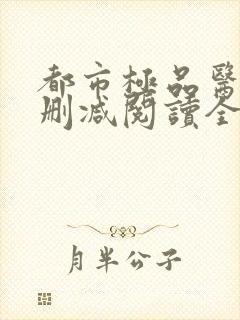 都市極品醫
刪減閱讀全
月半公子